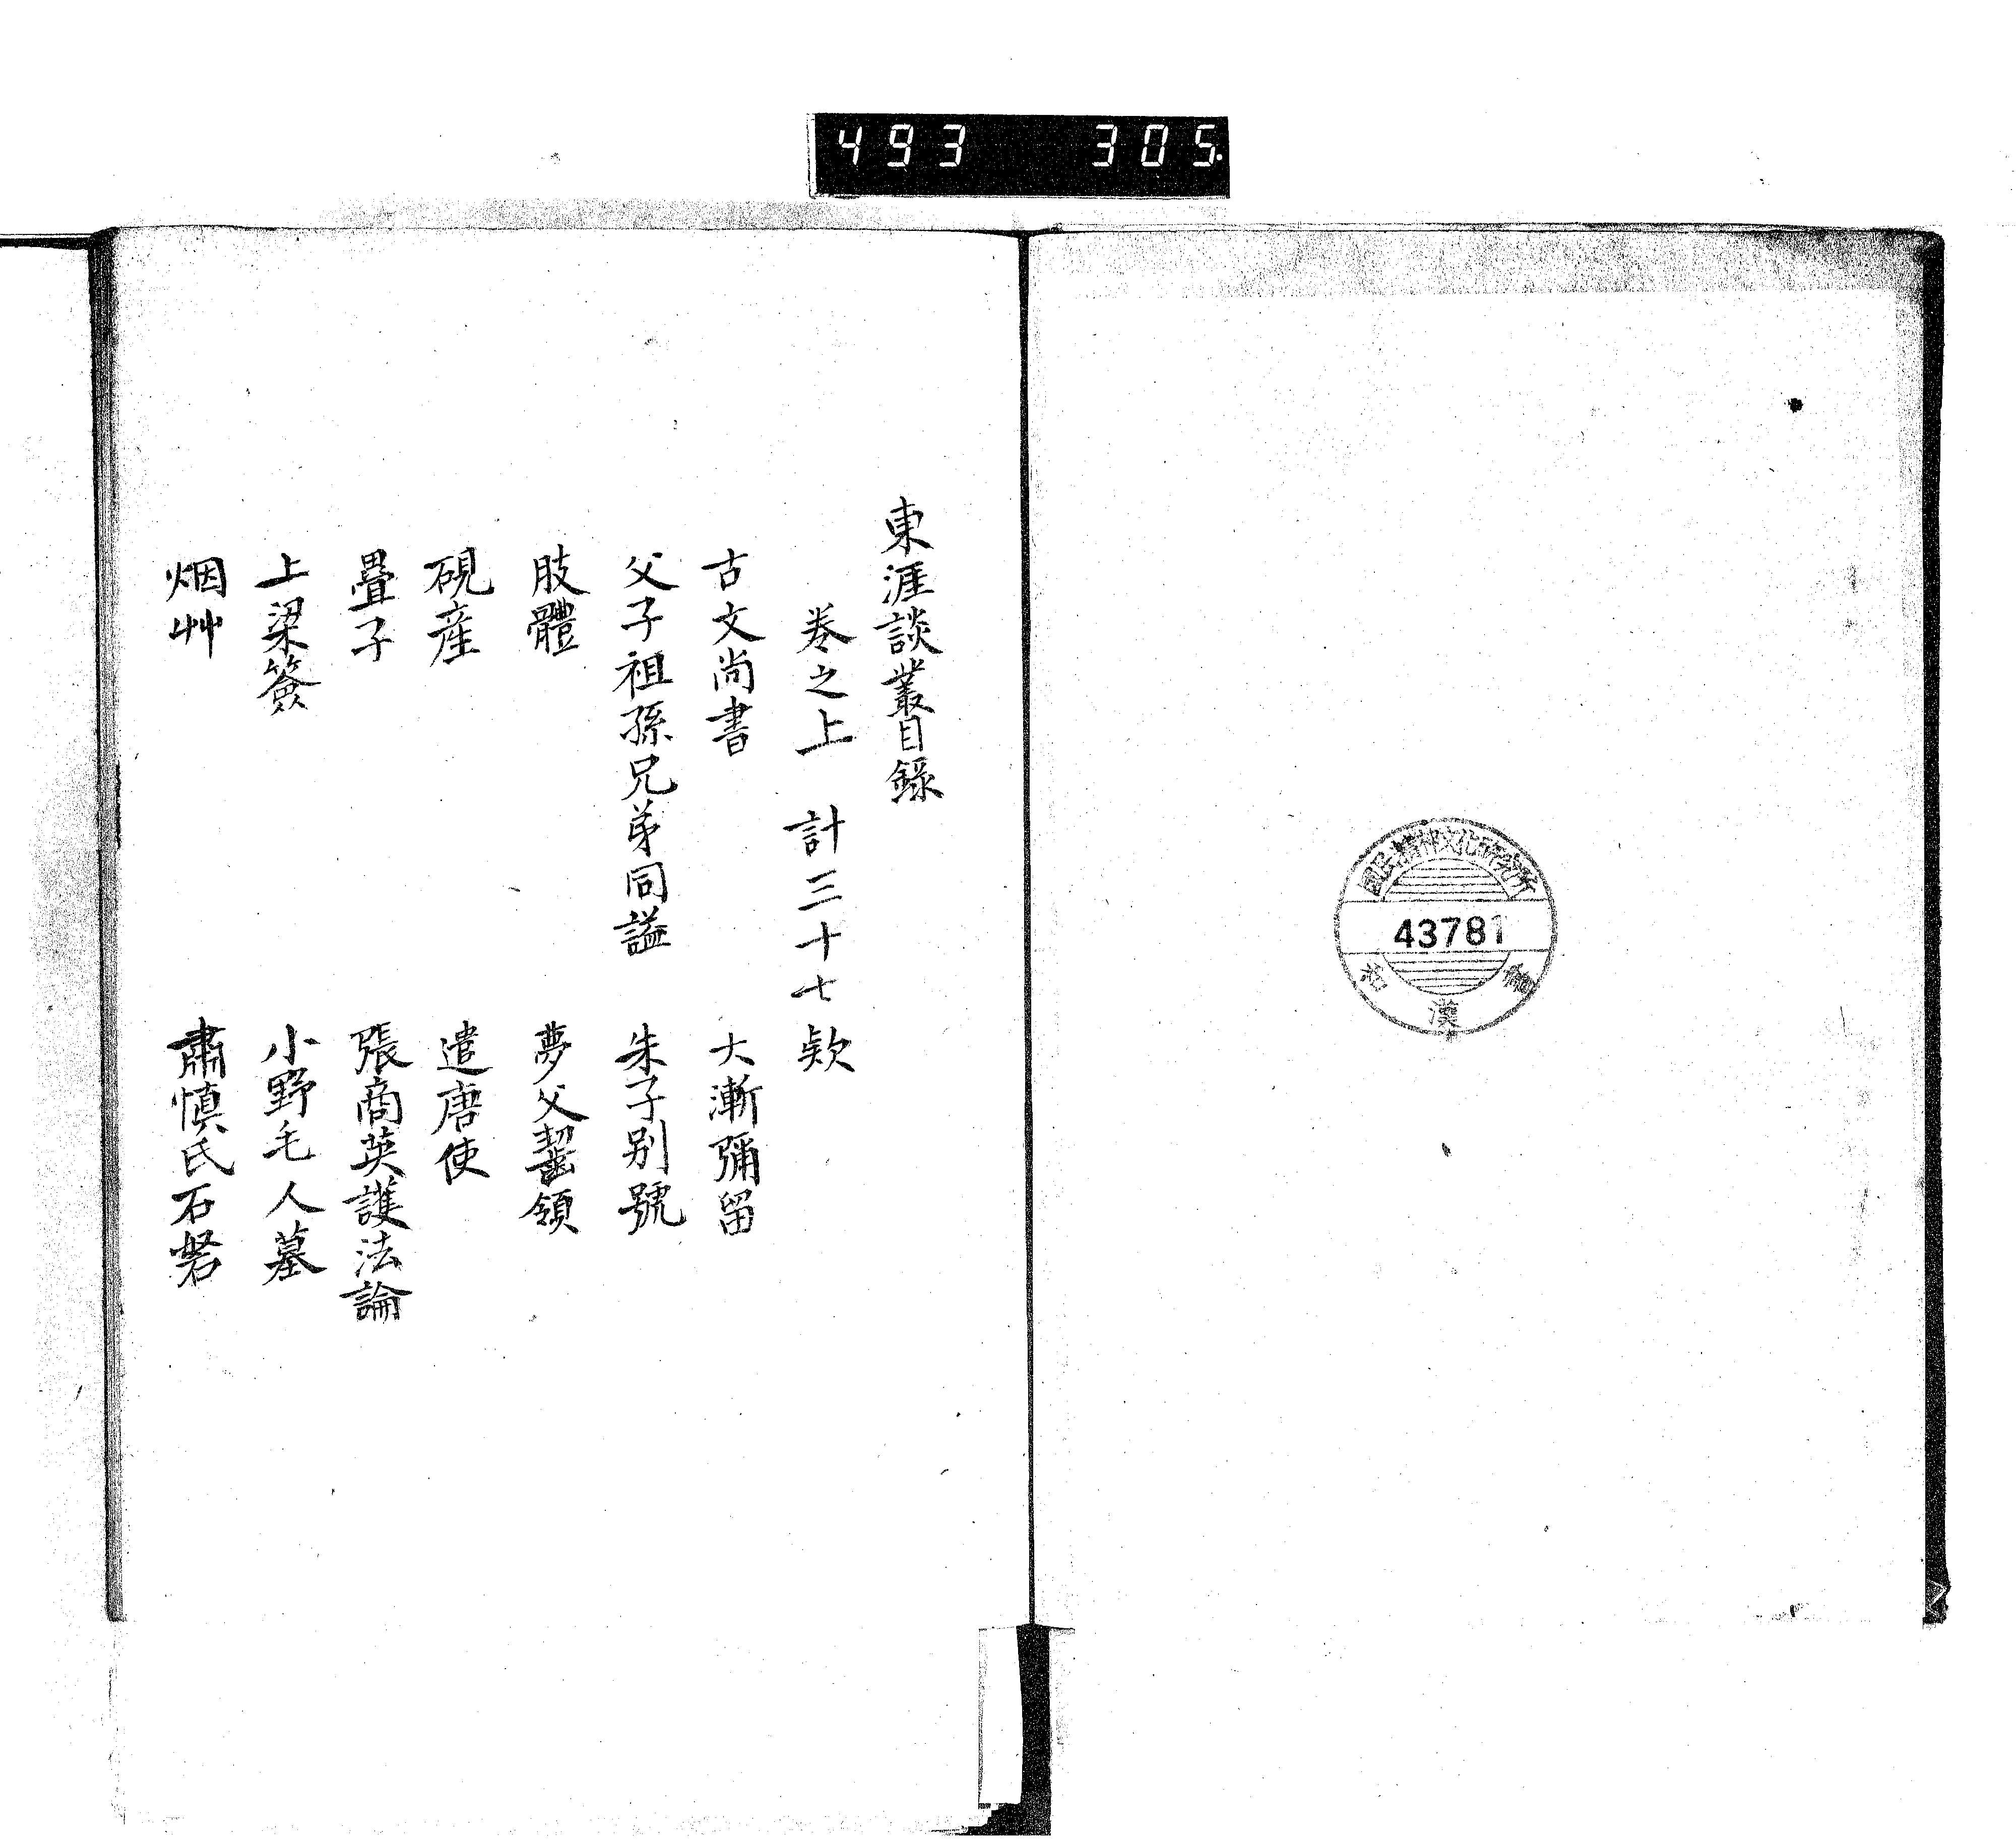 493 305
國民精神文化研究所
43781
漢
書
東涯談叢目錄
卷之上 計三十七欵
古文尚書 大漸彌留
父子祖孫兄弟同謚 朱子别號
肢體 夢父齧領
硯産 遣唐使
疊子 張商英護法論
上梁簽 小野毛人墓
烟艸 肅慎氏石砮